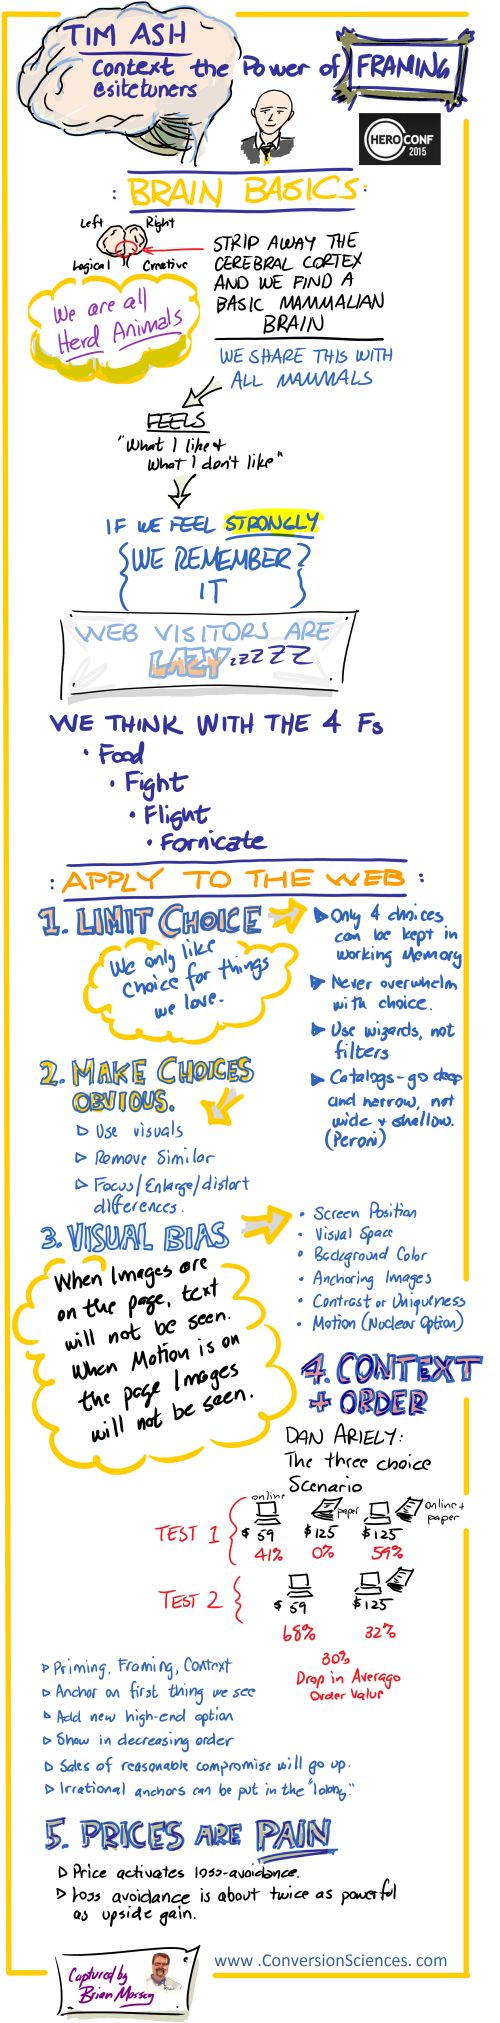 TIM ASH
Context the Power of FRAMING
@sitetuners
HEROCONF
2015
: BRAIN BASICS :
Left Right
Logical Creative
STRIP AWAY THE
CEREBRAL CORTEX
AND WE FIND A
BASIC MAMMALIAN
BRAIN
We are all
Herd Animals
WE SHARE THIS WITH
ALL MAMMALS
FEELS
"What I like +
What I don't like"
IF WE FEEL STRONGLY
{WE REMEMBER}
IT
WEB VISITORS ARE
LAZY zzZZZZ
WE THINK WITH THE 4 Fs
• Food
• Fight
• Flight
• Fornicate
: APPLY TO THE WEB :
1. LIMIT CHOICE
We only like
choice for things
we love.
Only 4 choices
can be kept in
working memory
Never overwhelm
with choice.
Use wizards, not
filters
Catalogs - go deep
and narrow, not
wide + shallow.
(Peroni)
2. MAKE CHOICES
OBVIOUS.
Use visuals
Remove Similar
Focus/Enlarge/distort
differences.
3. VISUAL BIAS
• Screen Position
• Visual Space
• Background Color
• Anchoring Images
• Contrast or Uniqueness
• Motion (Nuclear Option)
When Images are
on the page, text
will not be seen.
When Motion is on
the page Images
will not be seen.
4. CONTEXT
+ ORDER
DAN ARIELY:
The three choice
Scenario
online paper online +
paper
TEST 1 { $59 $125 $125
41% 0% 59%
TEST 2 { $59 $125
68% 32%
30%
Drop in Average
Order Value
Priming, Framing, Context
Anchor on first thing we see
Add new high-end option
Show in decreasing order
Sales of reasonable compromise will go up.
Irrational anchors can be put in the "lobby."
5. PRICES ARE PAIN
Price activates loss-avoidance.
Loss avoidance is about twice as powerful
as upside gain.
Captured by
Brian Massey
www.ConversionSciences.com